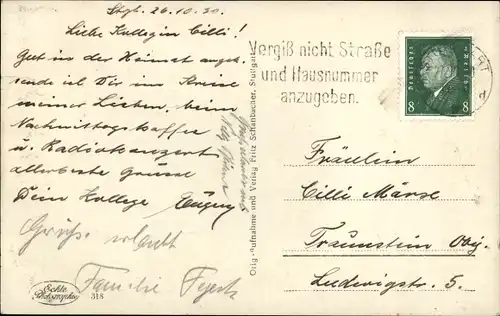 Stgt. 26.10.30.
Liebe Kollegin Cilli!
Gut in der Heimat angekommen
sende ich Dir im Kreise
meiner Lieben, beim
Nachmittagskaffee
u. Radiokonzert
allerbeste Grüsse
Dein Kollege Eugen
Grüße erlaubt
Familie
Echte
Photographie
318
Orig.-Aufnahme und Verlag Fritz Schlanbacher, Stuttgart
Vergiß nicht Straße
und Hausnummer
anzugeben.
Deutsches Reich
8 8
Fräulein
Cilli Märse
Traunstein Oby.
Ludwigstr. 5.